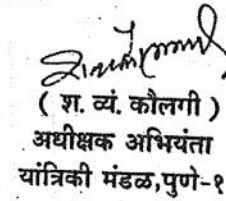 ( श. व्यं. कौलगी )
अधीक्षक अभियंता
यांत्रिकी मंडळ,पुणे-१